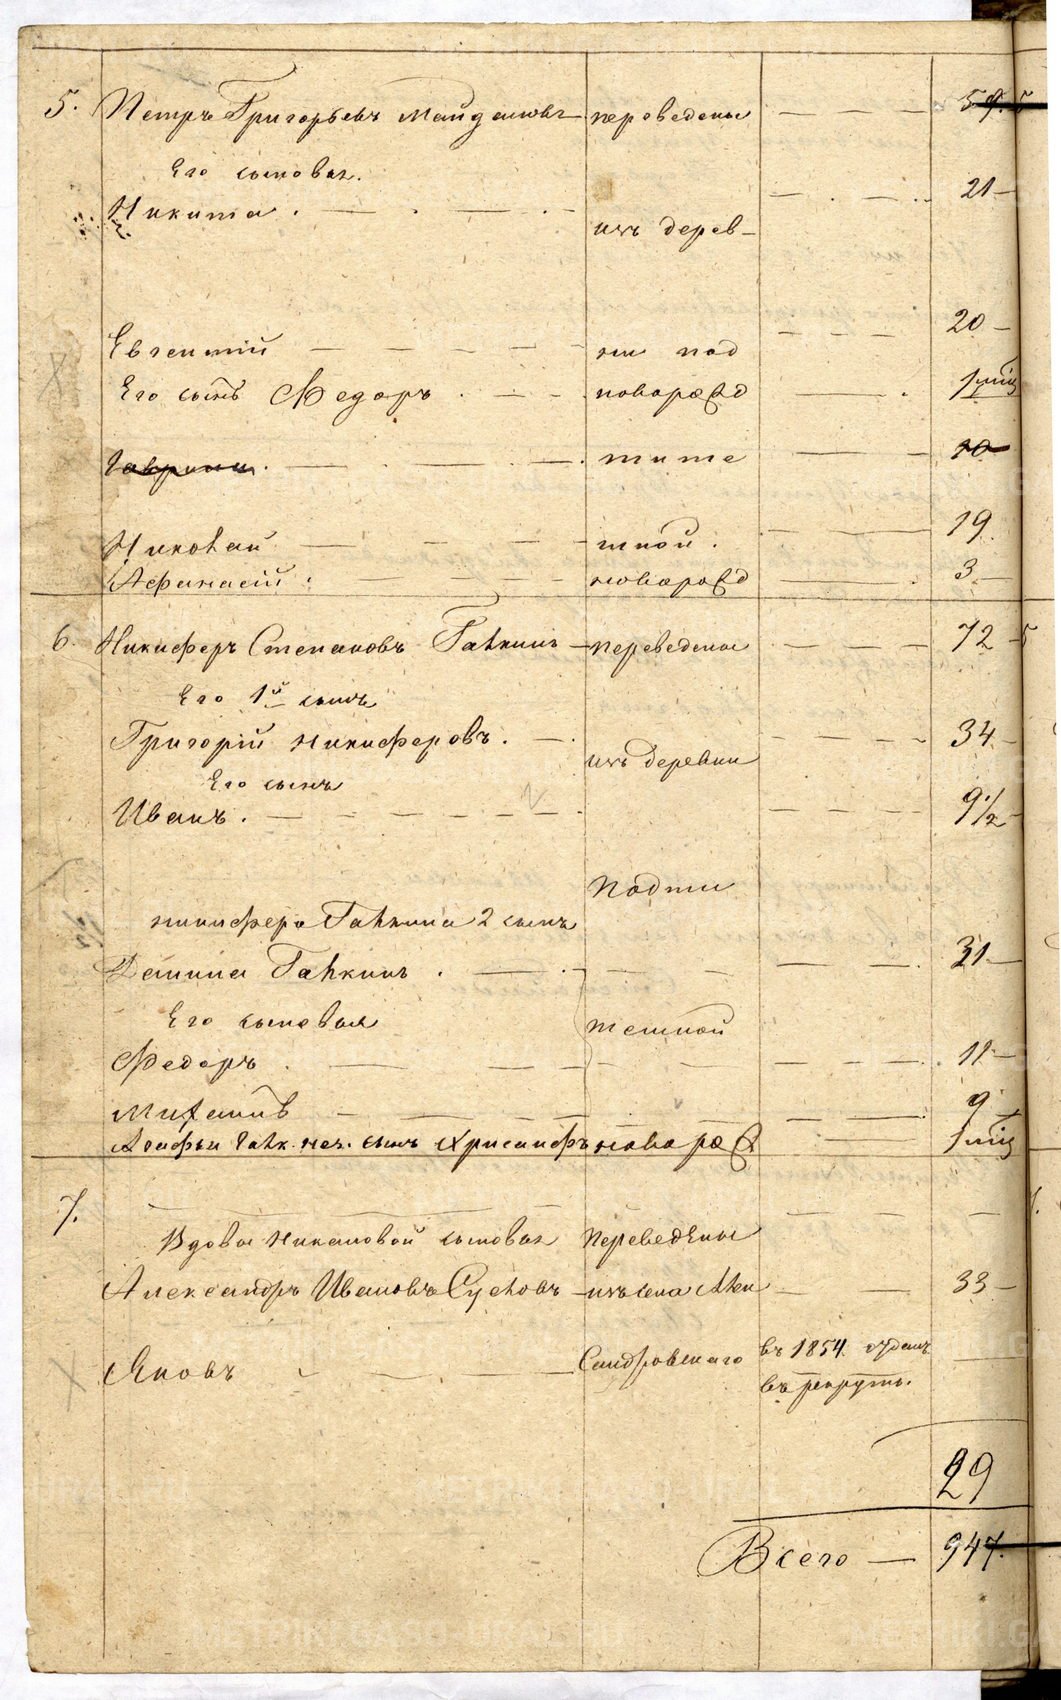 5. Петръ Григорьевъ Майдановъ — переведены — — — 59.
Его сыновья.
Никита . — . — . — 21 —
изъ дерев-
20 —
Евгентий — — — — — ни под
Его сынъ Федоръ . — — новорожд — . 1 мѣц
Гаврила . — . — . — . тите — 10
19
Николай — — — — тной .
Афанасій . — — — — новорожд — . 3 —
6. Никифоръ Степановъ Галкинъ — переведены — — — 72 —
Его 1й сынъ
Григорій Никифоровъ . — . — — — — 34 —
изъ деревни
Его сынъ
Иванъ . — — — — — — . — — — 9 1/2
Подти
Никифора Галкина 2 сынъ
Данила Галкинъ . — . — — — — — . 31 —
Его сыновья
тетной
Федоръ . — — — — — — — — . 11 —
Михаилъ — — — — — 9 —
Агафьи Галк. нез. сынъ Хрисанфъ новорож 1 мѣц
7.
Вдовы Никаповой сыновья переведены — — — —
Александръ Ивановъ Сусловъ — изъ села Алек — — 33 —
Яковъ — — — — Сандровскаго въ 1854. отданъ —
въ рекруты.
29
Всего — 947.